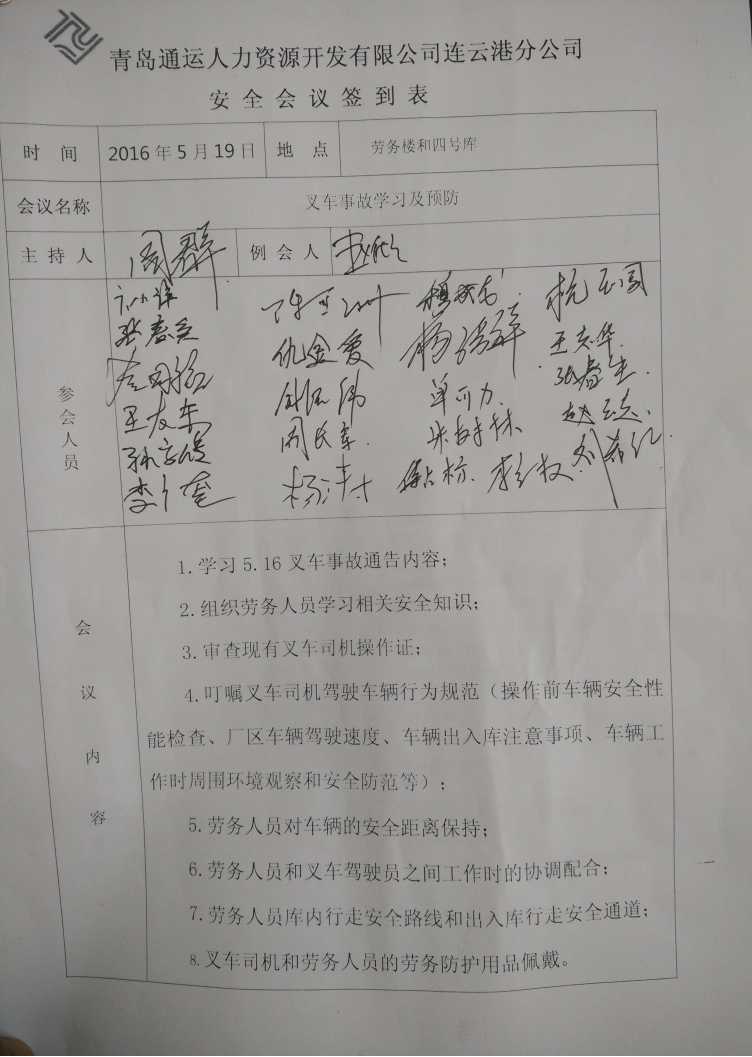 青岛通运人力资源开发有限公司连云港分公司
安全会议签到表
时 间 2016年5月19日 地 点 劳务楼和四号库
会议名称 叉车事故学习及预防
主持人 周群 例会人
参会人员
仇金爱 杨诗群 王志华
王友东 单可力
李 杨
会议内容
1.学习5.16叉车事故通告内容；
2.组织劳务人员学习相关安全知识；
3.审查现有叉车司机操作证；
4.叮嘱叉车司机驾驶车辆行为规范（操作前车辆安全性
能检查、厂区车辆驾驶速度、车辆出入库注意事项、车辆工
作时周围环境观察和安全防范等）；
5.劳务人员对车辆的安全距离保持；
6.劳务人员和叉车驾驶员之间工作时的协调配合；
7.劳务人员库内行走安全路线和出入库行走安全通道；
8.叉车司机和劳务人员的劳务防护用品佩戴。